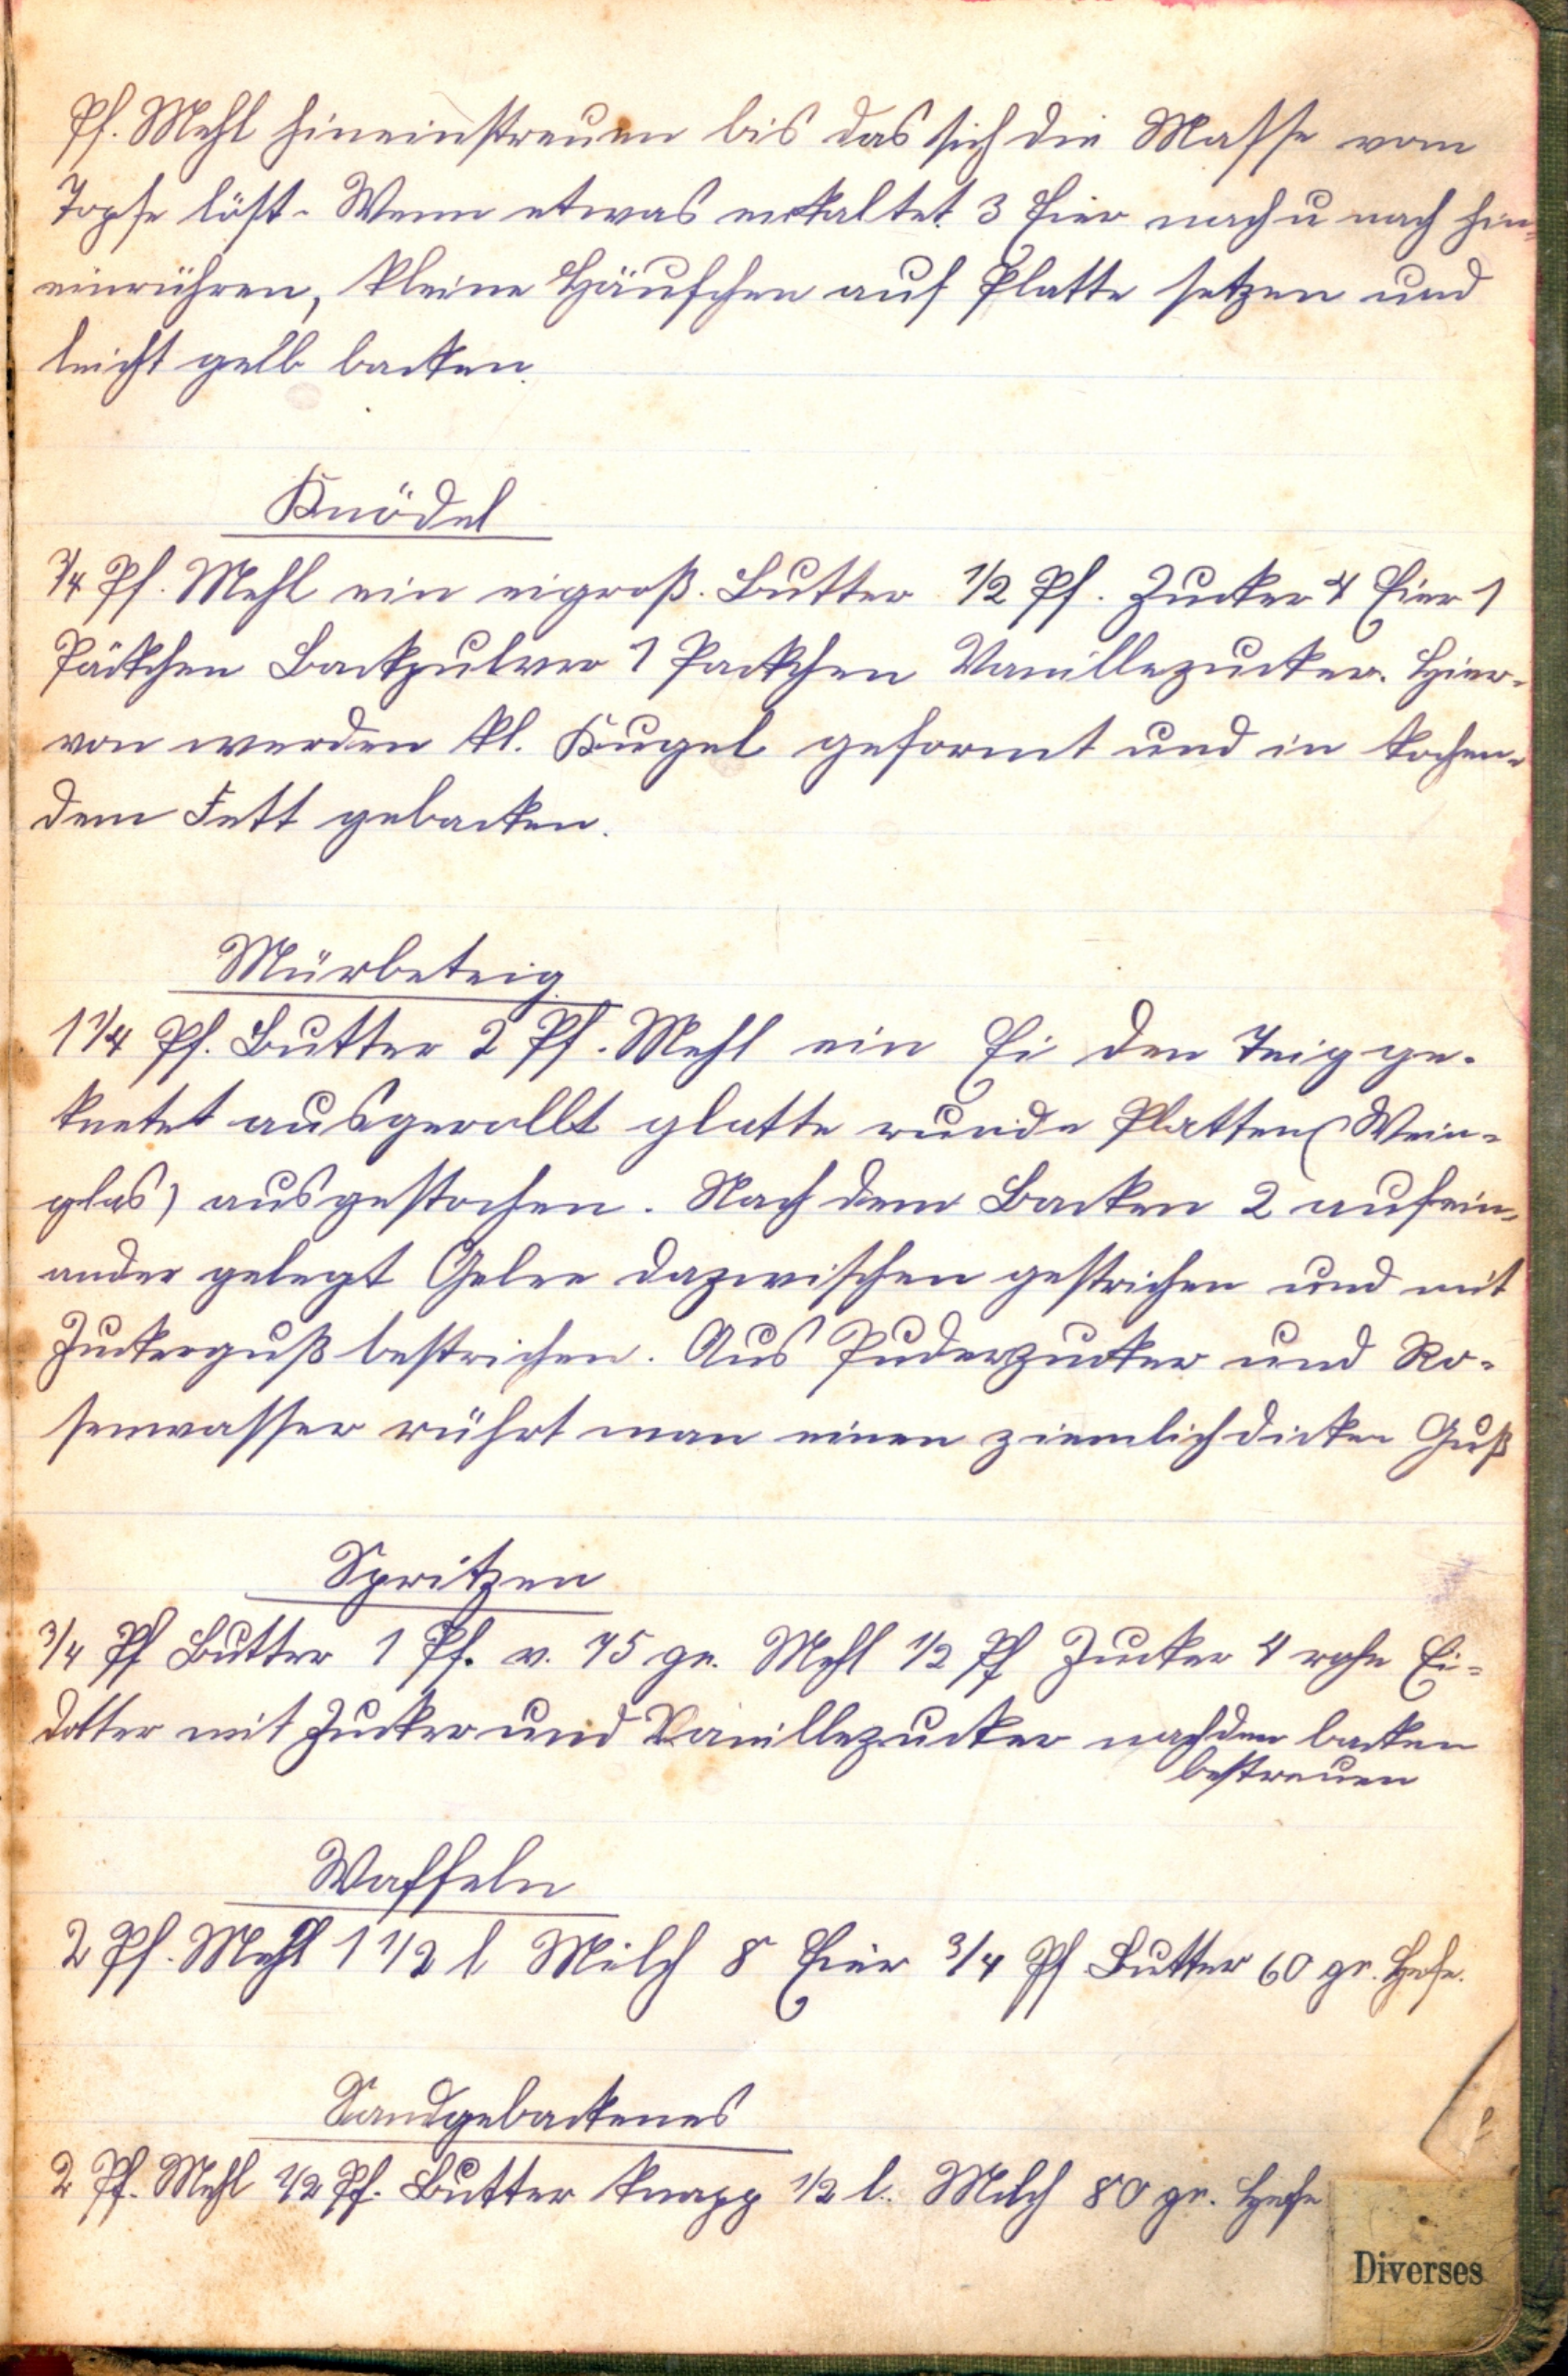 Pf. Mehl hineinstreuen bis das sich die Masse vom
Topfe löst. Wenn etwas erkaltet 3 Eier nach u nach hin-
einrühren, kleine Häufchen auf Platte setzen und
leicht gelb backen.
Knödel
3/4 Pf. Mehl ein eigroß. Butter 1/2 Pf. Zucker 4 Eier 1
Päckchen Backpulver 1 Packchen Vanillezucker. Hier-
von werden kl. Kugel geformt und in kochen-
dem Fett gebacken.
Mürbeteig
1 1/4 Pf. Butter 2 Pf. Mehl ein Ei den Teig ge-
knetet ausgerollt glatte runde Platten (Wein-
glas) ausgestochen. Nach dem Backen 2 aufein-
ander gelegt Gelee dazwischen gestrichen und mit
Zuckerguß bestrichen. Aus Puderzucker und Ro-
senwasser rührt man einen ziemlich dicken Guß
Spritzen
3/4 Pf Butter 1 Pf. u. 75 gr. Mehl 1/2 Pf Zucker 4 rohe Ei-
dotter mit Zucker und Vanillezucker nach dem backen
bestreuen
Waffeln
2 Pf. Mehl 1 1/2 l Milch 8 Eier 3/4 Pf Butter 60 gr. Hefe.
Sandgebackenes
2 Pf. Mehl 1/2 Pf. Butter knapp 1/2 l. Milch 80 gr. Hefe
Diverses